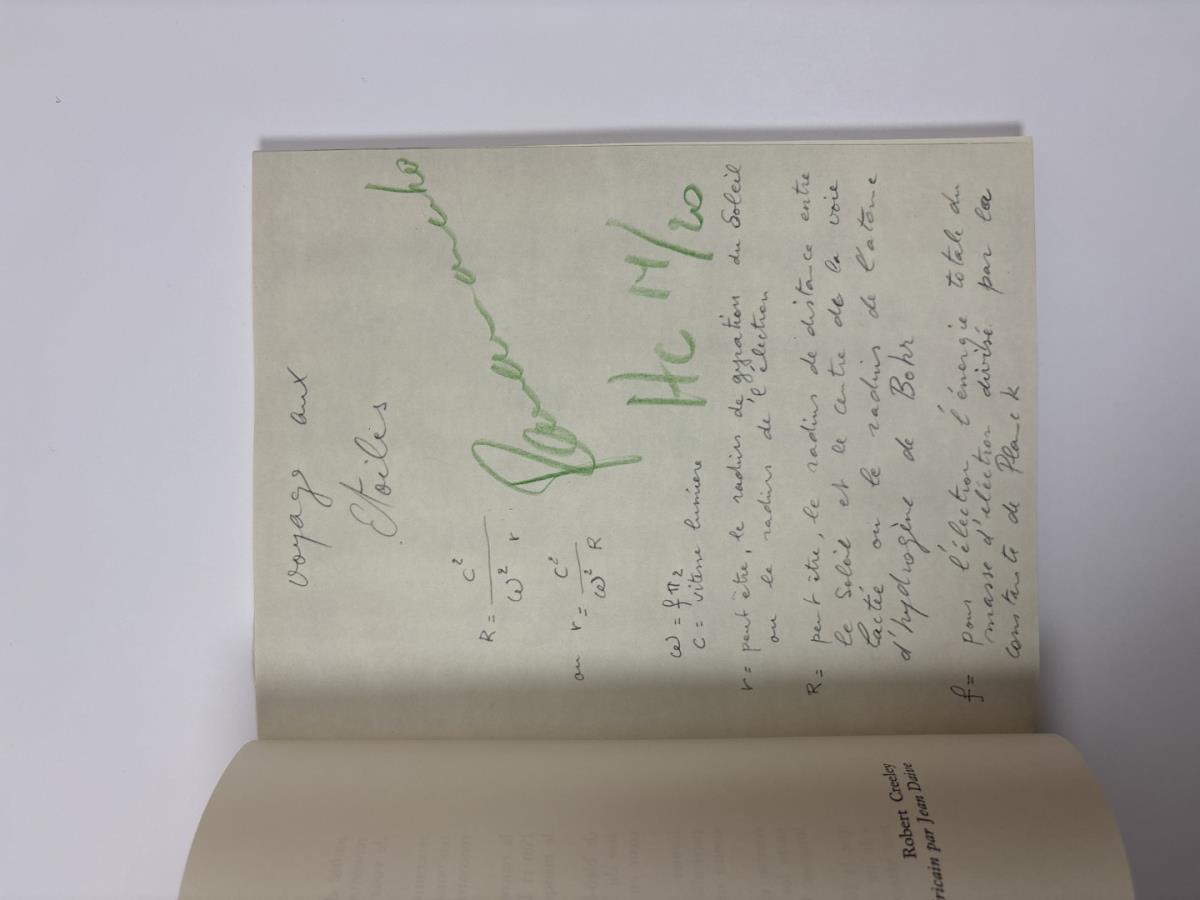 voyage aux
Etoiles
R = c²
ω² r
ou r = c²
ω² R
HC M/20
ω = f π 2
c = vitesse lumière
r = peut être, le radius de gyration du Soleil
ou le radius de l'électron
R = peut être, le radius de distance entre
le Soleil et le centre de la voie
lactée ou le radius de l'atome
d'hydrogène de Bohr
f = pour l'électron l'énergie totale du
masse d'électron divisé par la
constante de Planck
Robert Creeley
ricain par Jean Daive